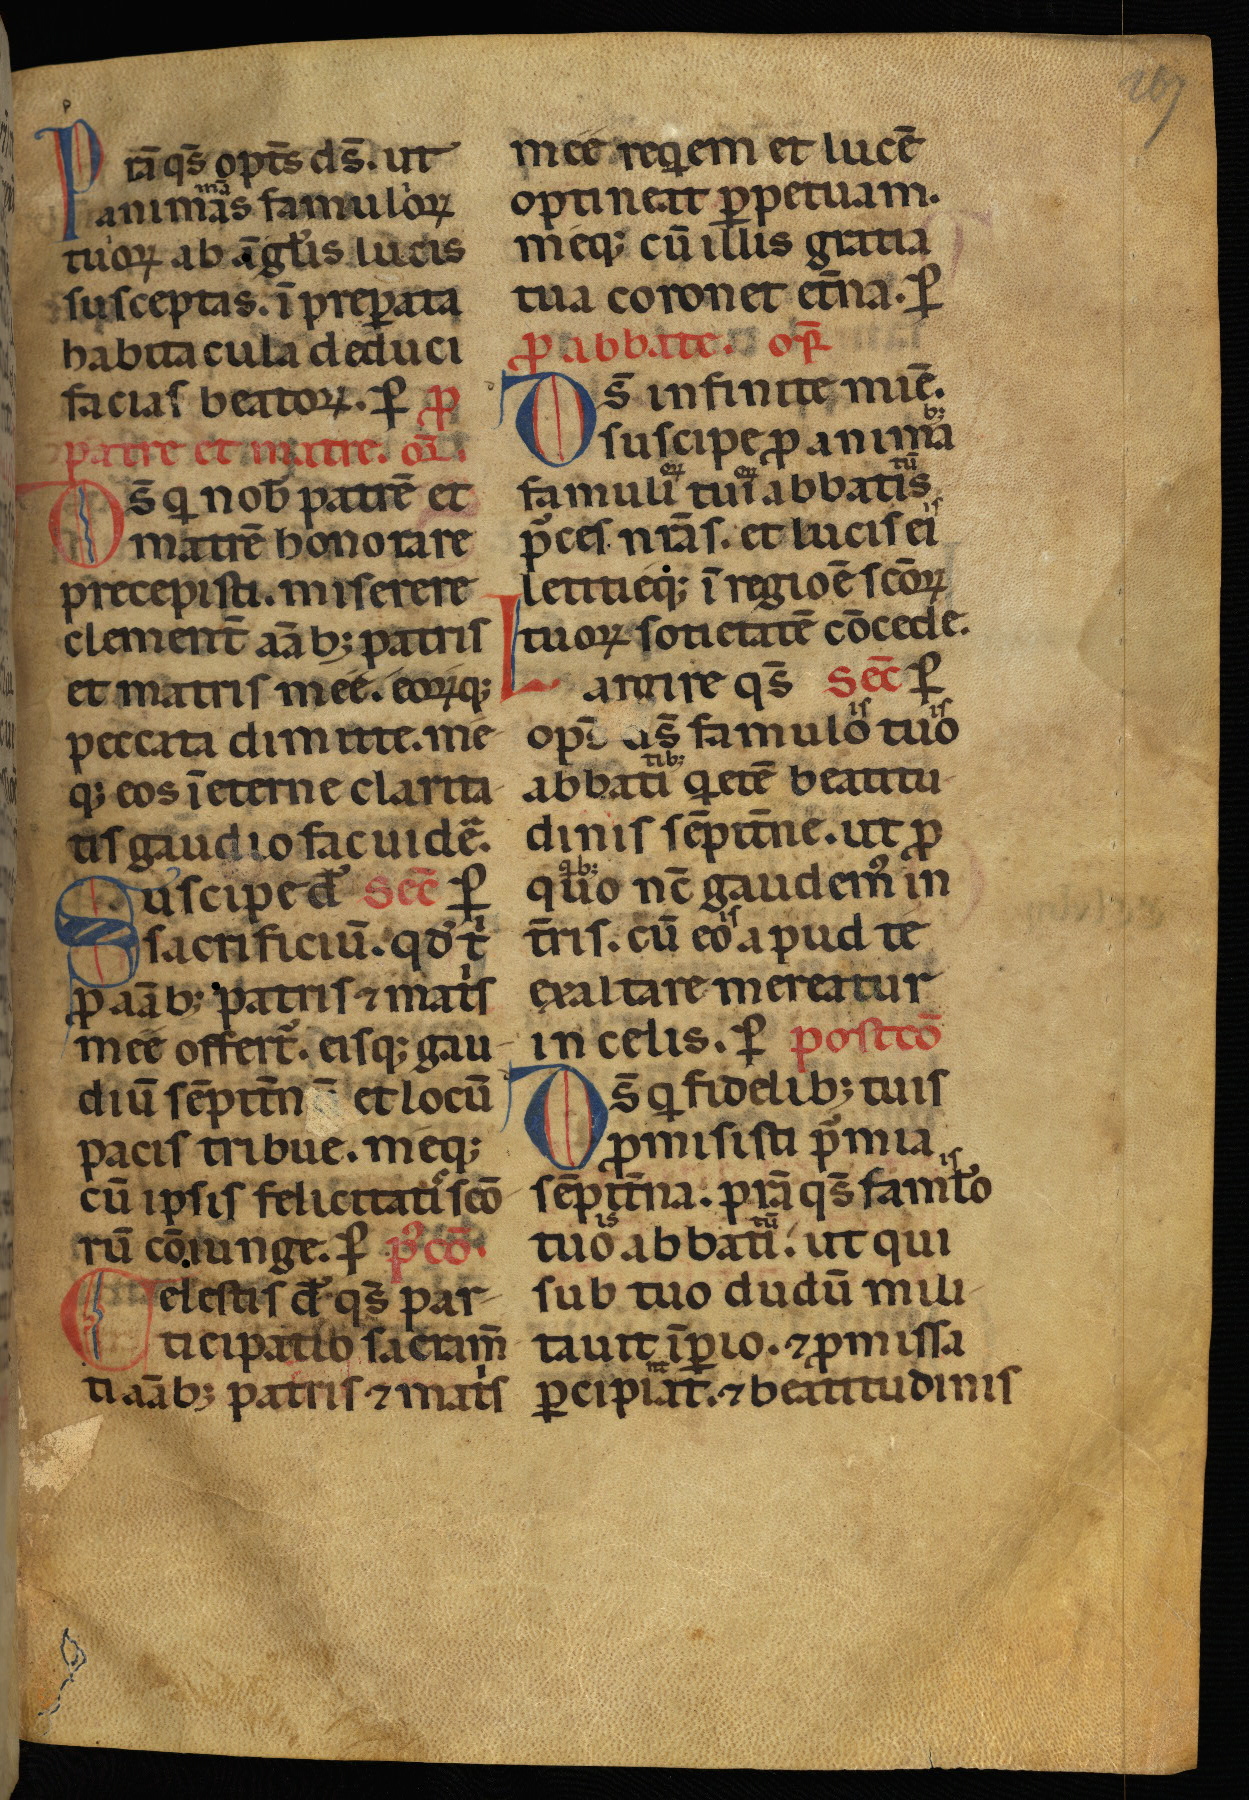 167
P rā q̄s op̄ts d̄s. ut
animas famuloꝝ
mā
tuoꝝ ab āgłis lucis
susceptas. ī preꝑata
habitacula deduci
facias beatoꝝ. ꝑ ꝓ
patre et matre. oꝛ̄.
D s̄ qͥ nob̄ patrē et
matrē honorare
precepisti. miserere
clement̄ aāb; patris
et matris meé. eoꝝq;
peccata dimitte. me
q; eos ī eterne clarita
tis gaudio fac uidē.
S uscipe d̄ſ secr̄ ꝑ
sacrificiū. qd̓ tͥ
ꝓ aāb; patris ⁊ matͥs
meé offert̓. eisq; gau
diū sēpit̄n et locū
pacis tribue. meq;
cū ipsis felicitatiͨ scō
rū cōiunge. ꝑ p̓cō.
C elestis d̄ſ q̄s par
ticipatio sacram̄
ti aāb; patris ⁊ matͥs
meé reqͥem et lucē
optineat ꝑpetuam.
meq; cū illis gratia
tua coronet et̄na. ꝑ
ꝓ abbate. or̄
D s̄ infinite mīe.
suscipe ꝓ anima
b;
famuli tui abbatis
eꝝ eꝝ tū
p̄ces nr̄as. et lucis ei
is
letitieq; ī regiōe scōꝝ
tuoꝝ sotietatē cōcede.
L argire q̄s secr̄ ꝑ
op̄ ds̄ famulo tuo
is is
abbati qͥetē beatitu
tib;
dinis sēpit̄ne. ut ꝓ
quo nc̄ gaudem᷒ in
qͥb;
t̄ris. cū eo apud te
is
exaltare mereatur
in celis. ꝑ postcō
D s̄ qͥ fidelib; tuis
ꝓmisisti p̄mia
sēpit̄na. p̄rā q̄s famło
is
tuo abbati. ut qui
is tū
sub tuo dudū mili
tauit īꝑio. ⁊ ꝓmissa
ꝑcipiat. ⁊ beatitudinis
nt